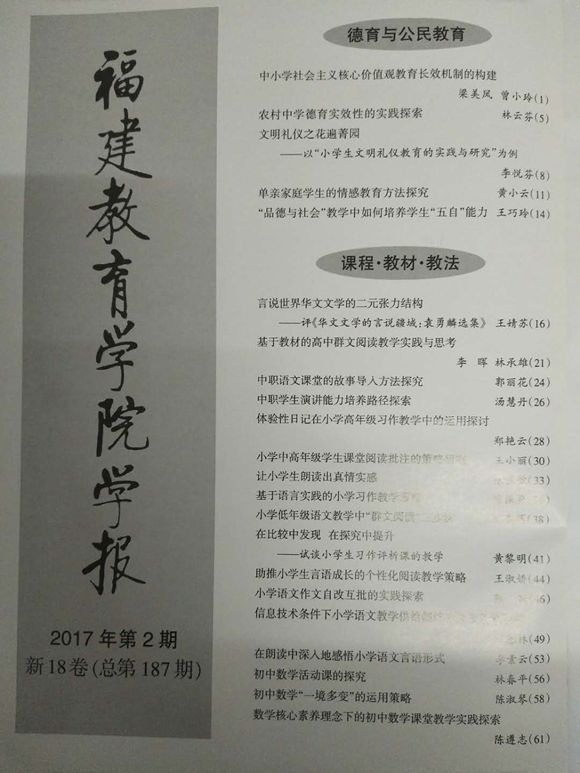 福建教育学院学报
2017年第2期
新18卷(总第187期)
德育与公民教育
中小学社会主义核心价值观教育长效机制的构建
梁美凤 曾小玲(1)
农村中学德育实效性的实践探索 林云芬(5)
文明礼仪之花遍菁园
——以“小学生文明礼仪教育的实践与研究”为例
李悦芬(8)
单亲家庭学生的情感教育方法探究 黄小云(11)
“品德与社会”教学中如何培养学生“五自”能力 王巧玲(14)
课程·教材·教法
言说世界华文文学的二元张力结构
——评《华文文学的言说疆域:袁勇麟选集》 王婧苏(16)
基于教材的高中群文阅读教学实践与思考
李 晖 林承雄(21)
中职语文课堂的故事导入方法探究 郭丽花(24)
中职学生演讲能力培养路径探索 汤慧丹(26)
体验性日记在小学高年级习作教学中的运用探讨
郑艳云(28)
小学中高年级学生课堂阅读批注的策略 王小丽(30)
让小学生朗读出真情实感 (33)
基于语言实践的小学习作教学
小学低年级语文教学中“群文阅读” (38)
在比较中发现 在探究中提升
——试谈小学生习作评析课的教学 黄黎明(41)
助推小学生言语成长的个性化阅读教学策略 王淑娇(44)
小学语文作文自改互批的实践探索 (46)
信息技术条件下小学语文教学供给
(49)
在朗读中深入地感悟小学语文言语形式 李素云(53)
初中数学活动课的探究 林春平(56)
初中数学“一境多变”的运用策略 陈淑琴(58)
数学核心素养理念下的初中数学课堂教学实践探索
陈遵志(61)